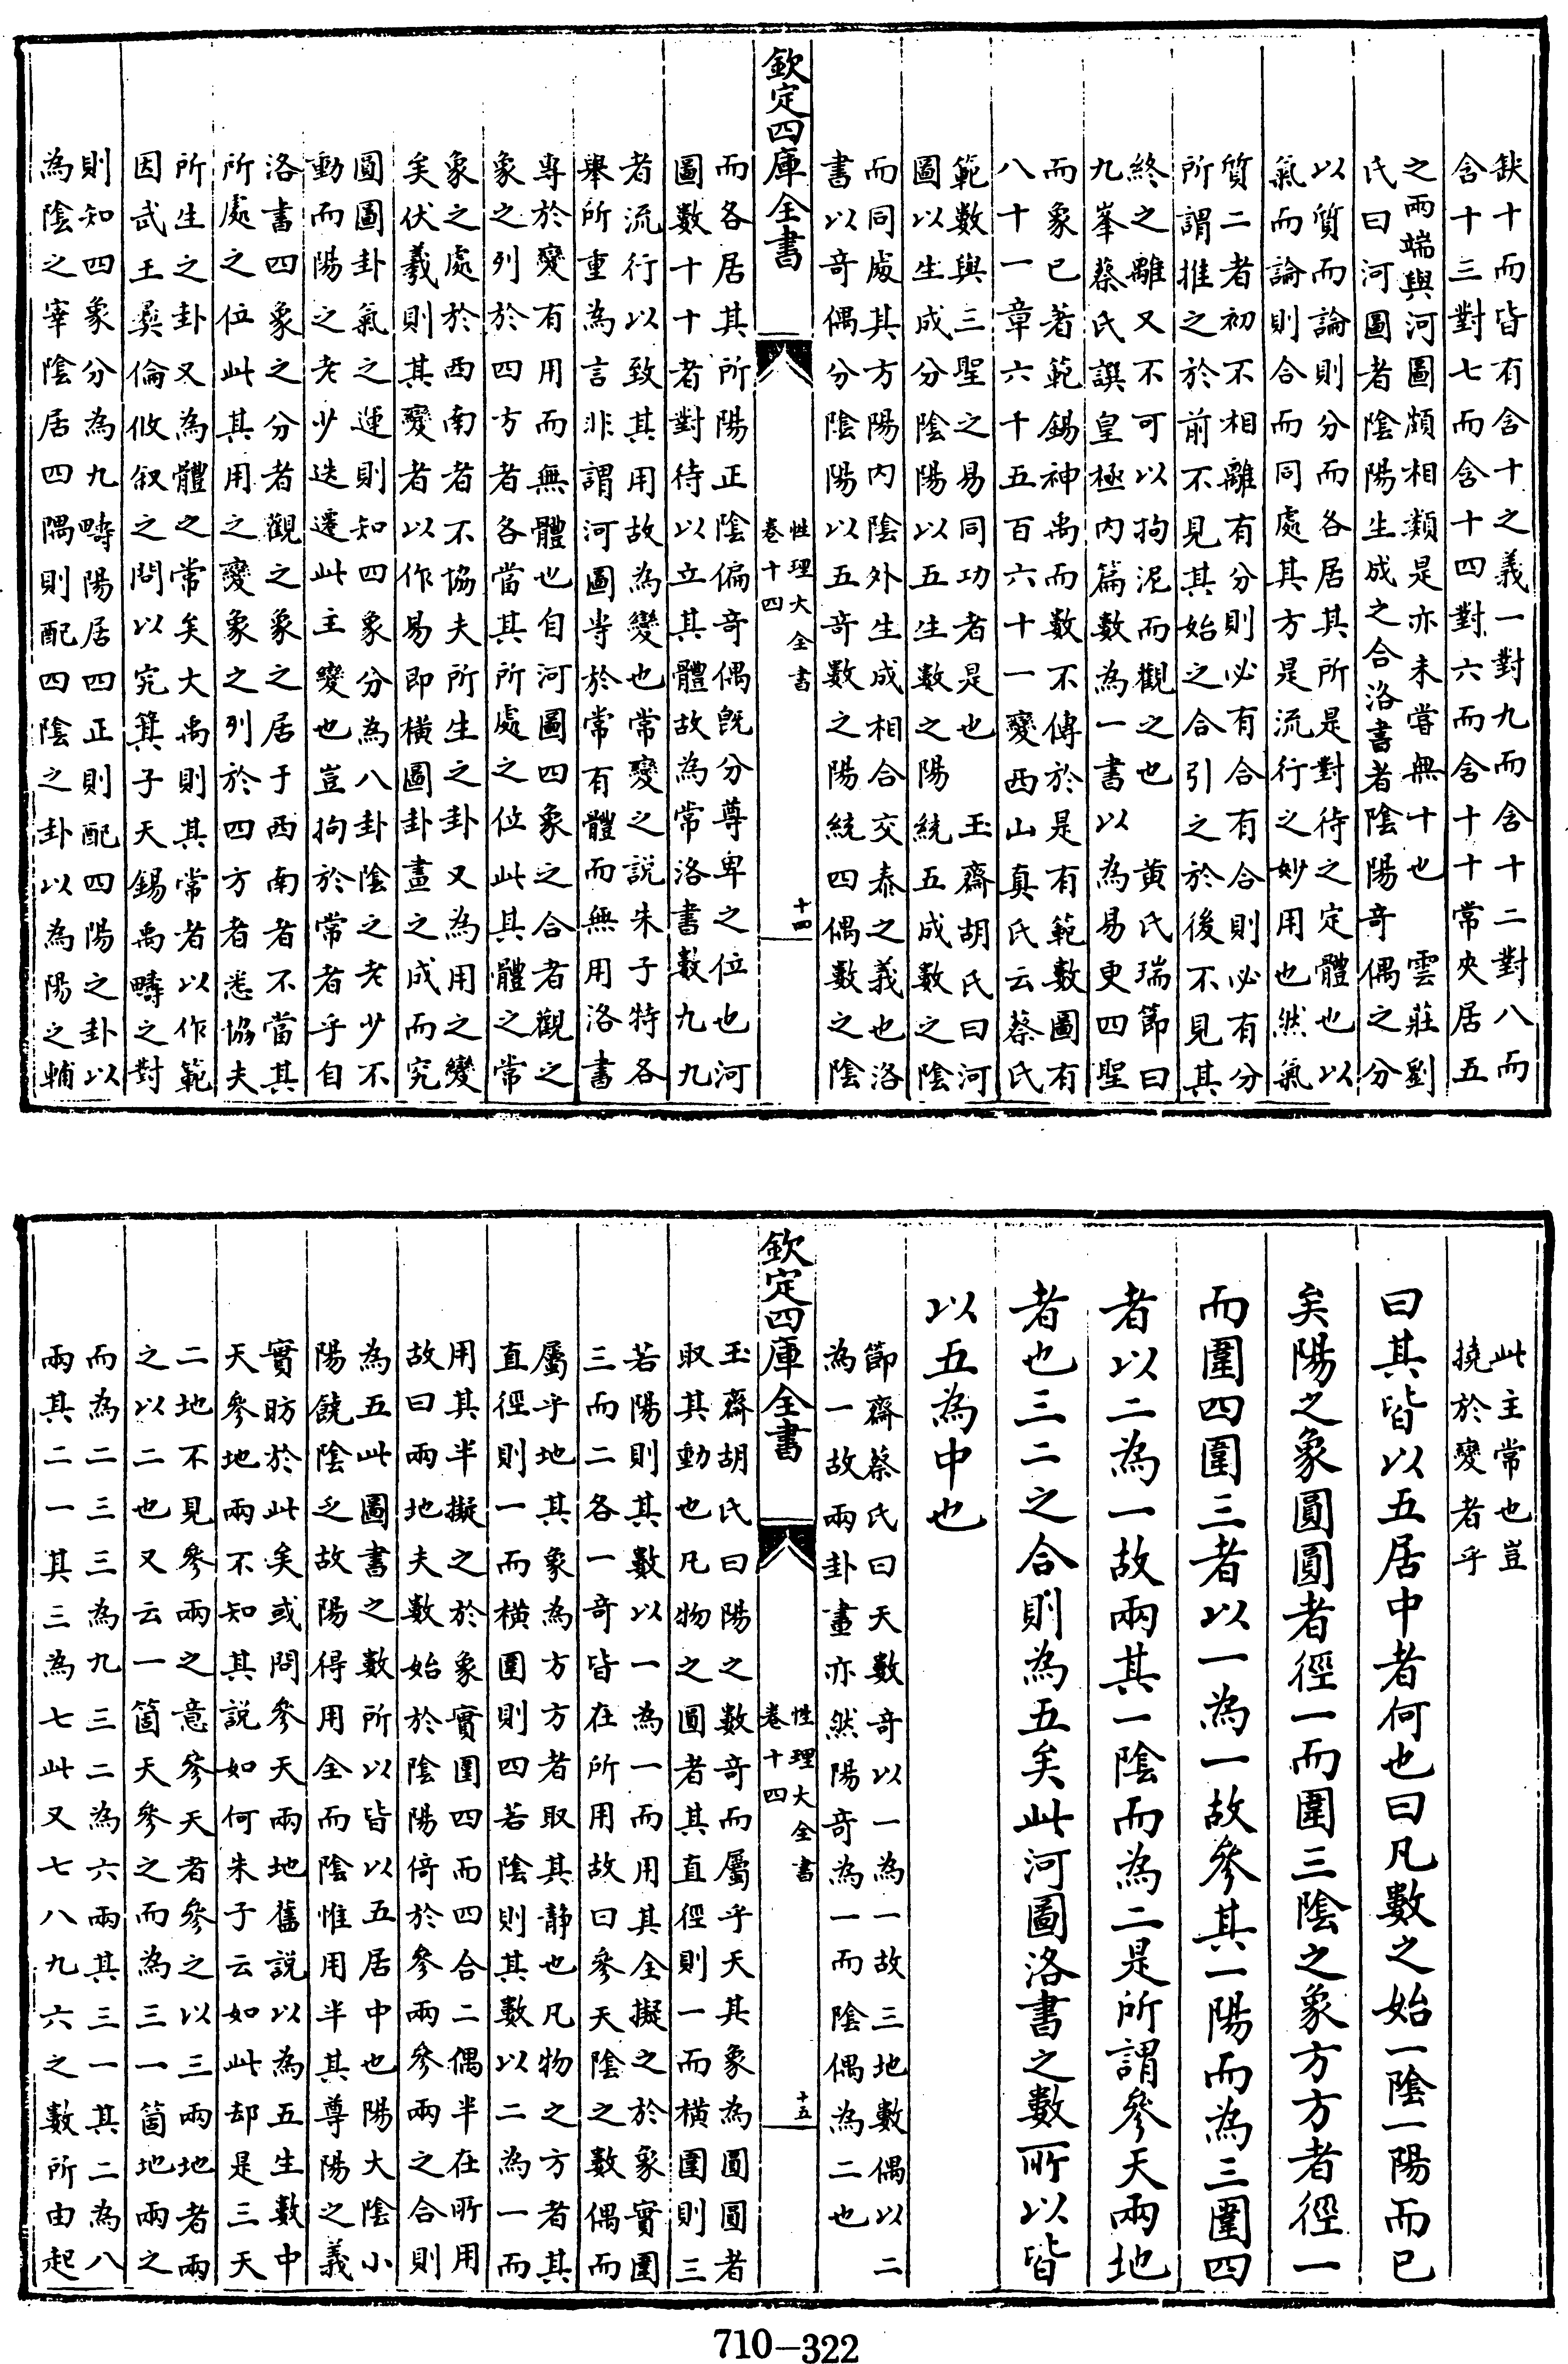 缺十而皆有含十之義一對九而含十二對八而
含十三對七而含十四對六而含十十常夾居五
之兩端與河圖頗相類是亦未嘗無十也　雲莊劉
氏曰河圖者陰陽生成之合洛書者陰陽奇偶之分
以質而論則分而各居其所是對待之定體也以
氣而論則合而同處其方是流行之妙用也然氣
質二者初不相離有分則必有合有合則必有分
所謂推之於前不見其始之合引之於後不見其
終之離又不可以拘泥而觀之也　黄氏瑞節曰
九峯蔡氏譔皇極内篇數為一書以為易更四聖
而象已著範錫神禹而數不傳於是有範數圖有
八十一章六千五百六十一變西山真氏云蔡氏
範數與三聖之易同功者是也　玉齋胡氏曰河
圖以生成分陰陽以五生數之陽統五成數之陰
而同處其方陽内陰外生成相合交泰之義也洛
書以奇偶分陰陽以五奇數之陽統四偶數之陰
欽定四庫全書
性理大全書
卷十四
十四
而各居其所陽正陰偏奇偶旣分尊卑之位也河
圖數十十者對待以立其體故為常洛書數九九
者流行以致其用故為變也常變之說朱子特各
舉所重為言非謂河圖専於常有體而無用洛書
專於變有用而無體也自河圖四象之合者觀之
象之列於四方者各當其所處之位此其體之常
象之處於西南者不協夫所生之卦又為用之變
矣伏羲則其變者以作易即橫圖卦畫之成而究
圓圖卦氣之運則知四象分為八卦陰之老少不
動而陽之老少迭遷此主變也豈拘於常者乎自
洛書四象之分者觀之象之居于西南者不當其
所處之位此其用之變象之列於四方者悉協夫
所生之卦又為體之常矣大禹則其常者以作範
因武王彞倫攸叙之問以究箕子天錫禹疇之對
則知四象分為九疇陽居四正則配四陽之卦以
為陰之宰陰居四隅則配四陰之卦以為陽之輔
此主常也豈
撓於變者乎
曰其皆以五居中者何也曰凡數之始一陰一陽而已
矣陽之象圓圓者徑一而圍三陰之象方方者徑一
而圍四圍三者以一為一故參其一陽而為三圍四
者以二為一故兩其一陰而為二是所謂參天兩地
者也三二之合則為五矣此河圖洛書之數所以皆
以五為中也
節齋蔡氏曰天數奇以一為一故三地數偶以二
為一故兩卦畫亦然陽奇為一而陰偶為二也
欽定四庫全書
性理大全書
卷十四
十五
玉齋胡氏曰陽之數奇而屬乎天其象為圓圓者
取其動也凡物之圓者其直徑則一而橫圍則三
若陽則其數以一為一而用其全擬之於象實圍
三而二各一奇皆在所用故曰參天陰之數偶而
屬乎地其象為方方者取其静也凡物之方者其
直徑則一而橫圍則四若陰則其數以二為一而
用其半擬之於象實圍四而四合二偶半在所用
故曰兩地夫數始於陰陽倚於參兩參兩之合則
為五此圖書之數所以皆以五居中也陽大陰小
陽饒陰乏故陽得用全而陰惟用半其尊陽之義
實昉於此矣或問參天兩地舊説以為五生數中
天參地兩不知其説如何朱子云如此却是三天
二地不見參兩之意參天者參之以三兩地者兩
之以二也又云一箇天參之而為三一箇地兩之
而為二三三為九三二為六兩其三一其二為八
兩其二一其三為七此又七八九六之數所由起
710-322